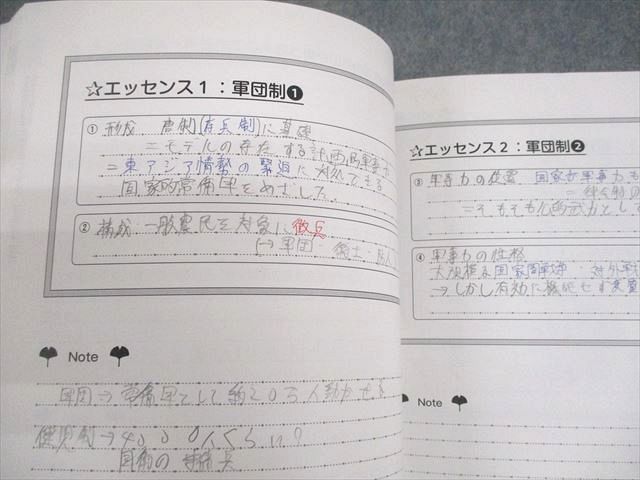 ☆エッセンス1：軍団制❶
① 形成 唐制(府兵制)に直接
＝モデルの存在する計画的軍事
＝東アジア情勢の緊迫に対処できる
国家的常備軍をめざした。
② 構成 一般農民を対象に徴兵
(→ 軍団・衛士・防人
Note
軍団⇒常備軍として約20万人動かせる
健児制→4000人くらい?
国衙の守備兵
☆エッセンス2：軍団制❷
③ 軍事力の位置 国家が軍事力を
＝
＝そもそも
④ 軍事力の性格
大規模な国家間戦争・対外戦
→しかし有効に機能せず
Note